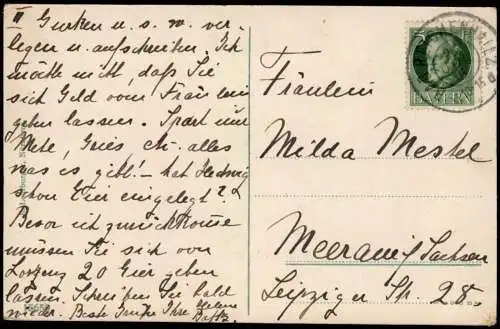 II Gurken u. s. w. ver-
legen u. aufschreiben. Ich
möchte nicht, daß Sie
sich Geld vom Fräulein
geben lassen. Spart nur
Mehl, Gries etc. alles
was es gibt! - hat Hedwig
schon Eier eingelegt??
Bevor ich zurückkomme
müssen Sie sich von
Lorenz 20 Eier geben
lassen. Schreiben Sie bald
wieder. Beste Grüße Ihre Helene
5
BAYERN
Fräulein
Milda Mestel
Meerane i/Sachsen
Leipziger Str. 28